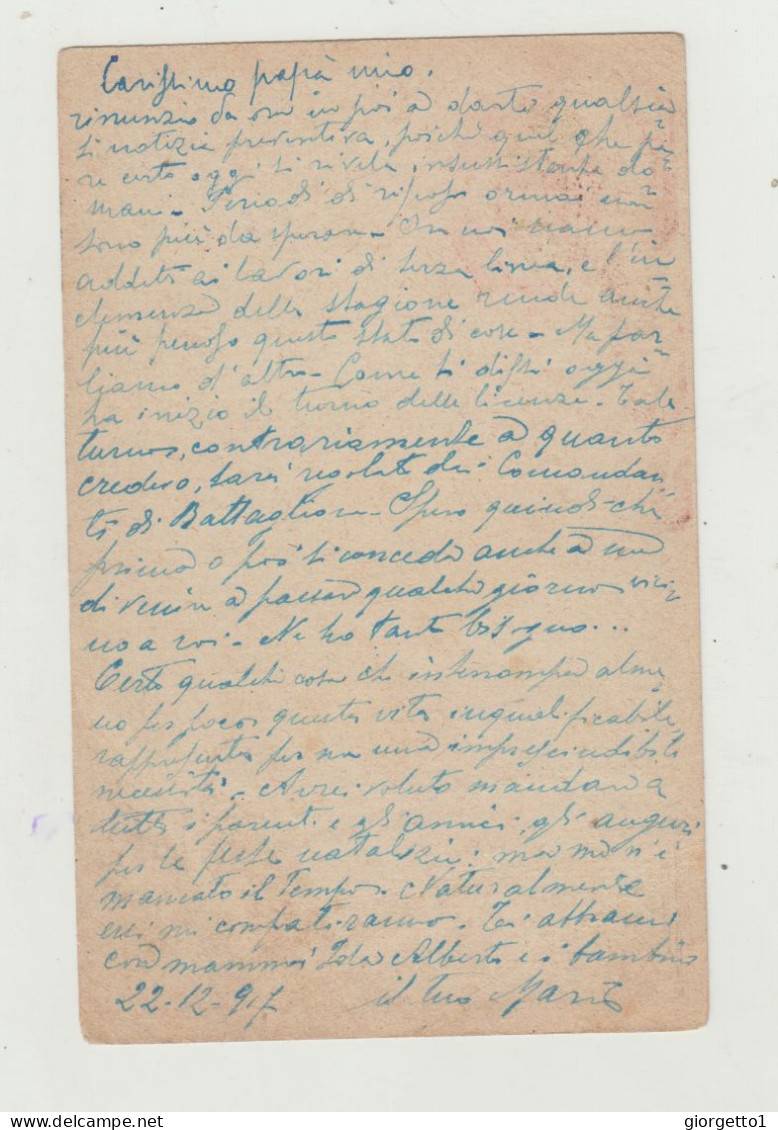 Carissimo papà mio.
rinunzio da ora in poi a darti qualsia
si notizia preventiva, poiché quel che pa=
re certo oggi si rivela insussistente do=
mani. Periodi di riposo ormai non
sono più da sperare. Ora noi siamo
addetti ai lavori di terza linea, e l'in
clemenza della stagione rende anche
più penoso questo stato di cose. Ma par=
liamo d'altro. Come ti dissi oggi
ha inizio il turno delle licenze. Tale
turno, contrariamente a quanto
credevo, sarà regolato dai Comandan
ti di Battaglione. Spero quindi che
prima o poi si conceda anche a me
di venire a passare qualche giorno vici=
no a voi. Ne ho tanto bisogno...
Certo qualche cosa che interrompa alme=
no per poco questa vita inqualificabile
rappresenta per me una imprescindibile
necessità. Avrei voluto mandare a
tutti i parenti e gli amici, gli auguri
per le feste natalizie: ma me n'è
mancato il tempo. Naturalmente
essi mi compatiranno. Ti abbraccio
con mamma Ida Alberto e i bambini
22-12-917 il tuo Mario
giorgetto1